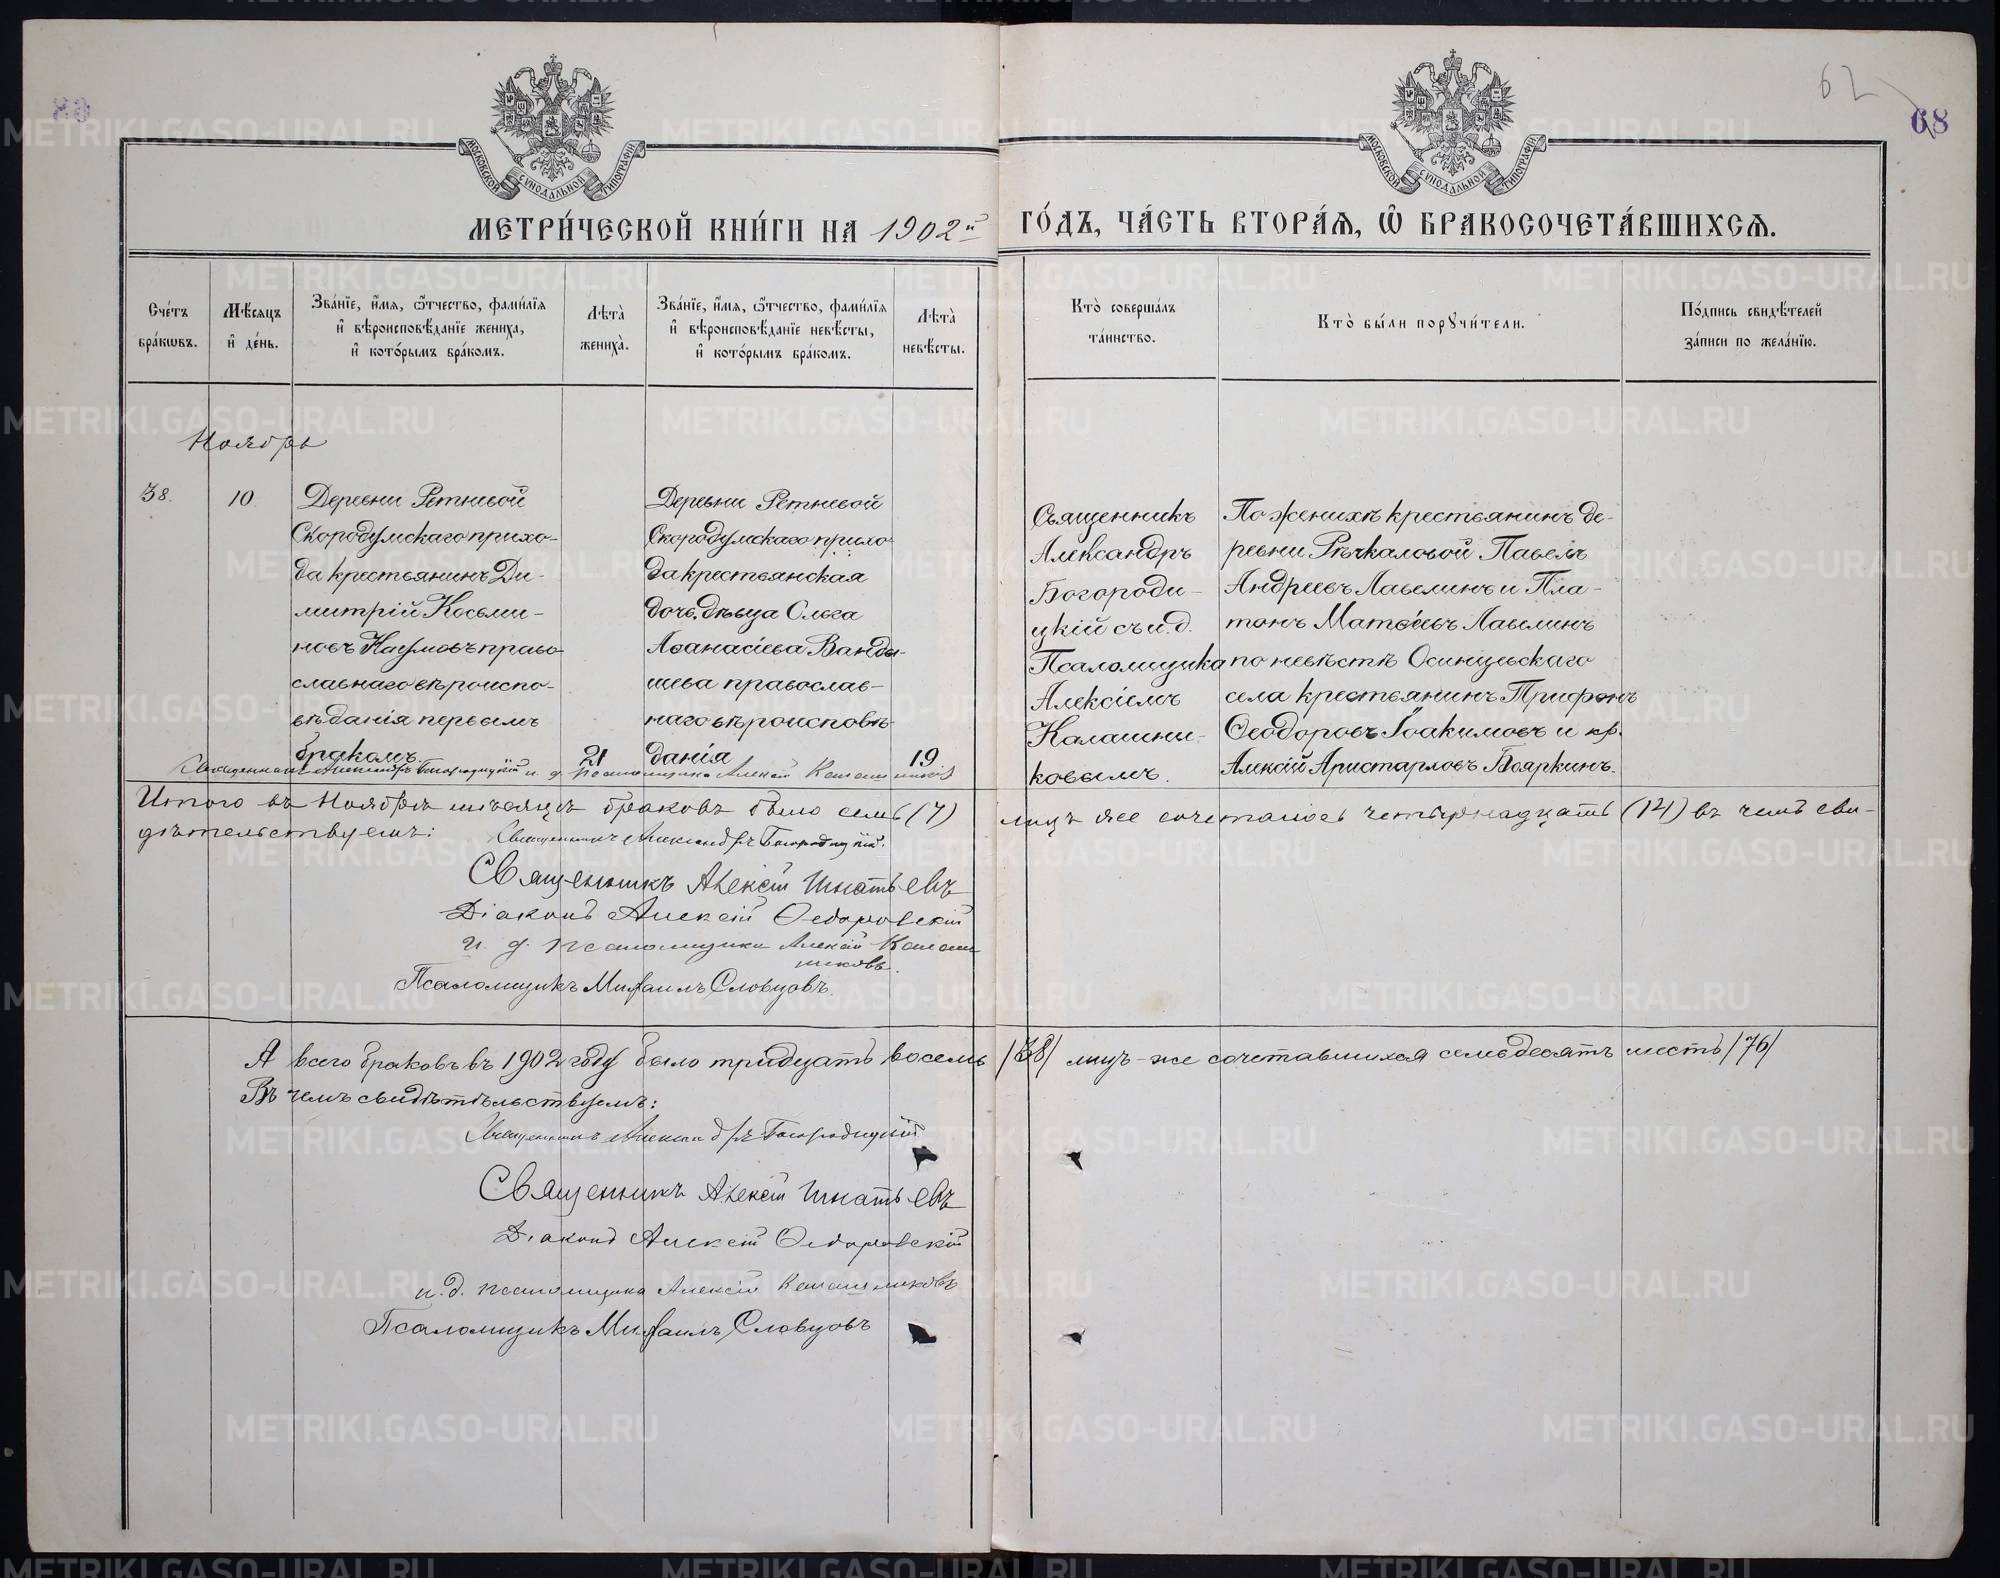 62
68
МОСКОВСКОЙ СѴНОДАЛЬНОЙ ТИПОГРАФІИ
МОСКОВСКОЙ СѴНОДАЛЬНОЙ ТИПОГРАФІИ
МЕТРИ́ЧЕСКОЙ КНИ́ГИ НА 1902й ГО́ДЪ, ЧА́СТЬ ВТОРА́Ѧ, Ѡ҆ БРАКОСОЧЕТА́ВШИХСѦ.
Сче́тъ бра́кѡвъ.
Мѣ́сѧцъ и҆ де́нь.
Зва́нїе, и҆́мѧ, ѻ҆́тчество, фами́лїѧ и҆ вѣроисповѣ́данїе жениха̀, и҆ кото́рымъ бра́комъ.
Лѣта̀ жениха̀.
Зва́нїе, и҆́мѧ, ѻ҆́тчество, фами́лїѧ и҆ вѣроисповѣ́данїе невѣ́сты, и҆ кото́рымъ бра́комъ.
Лѣта̀ невѣ́сты.
Кто̀ соверша́лъ та́инство.
Кто̀ бы́ли порꙋчи́тели.
По́дпись свидѣ́телей за́писи по жела́нїю.
Ноябрь
38.
10.
Деревни Ретневой
Скородумскаго прихо-
да крестьянинъ Ди-
митрій Косьми-
новъ Наумовъ право-
славнаго вѣроиспо-
вѣданія первымъ
бракомъ.
21
Деревни Ретневой
Скородумскаго прихо-
да крестьянская
дочь дѣвица Ольга
Аѳанасіева Ванды-
шева православ-
наго вѣроисповѣ-
данія
19.
Священникъ
Александръ
Богороди-
цкій съ и.д.
Псаломщика
Алексіемъ
Калашни-
ковымъ.
По женихѣ крестьянинъ де-
ревни Рѣчкаловой Павелъ
Андреевъ Лавелинъ и Пла-
тонъ Матѳіевъ Лавелинъ
по невѣстѣ Осинцевскаго
села крестьянинъ Трифонъ
Ѳеодоровъ Іоакимовъ и кр.
Алексій Аристарховъ Бояркинъ.
Священникъ Александръ Богородицкій и. д. псаломщика Алексій Калашниковъ
Итого въ Ноябрѣ мѣсяцѣ браковъ было семь (7) лицъ же сочеталось четырнадцать (14) въ чемъ сви-
дѣтельствуемъ:
Священникъ Александръ Богородицкій.
Священникъ Алексій Игнатьевъ
Діаконъ Алексій Ѳедоровскій
и. д. псаломщика Алексій Калаш
никовъ.
Псаломщикъ Михаилъ Словцовъ.
А всего браковъ въ 1902 году было тридцать восемь /38/ лицъ-же сочетавшихся семьдесятъ шесть /76/
Въ чемъ свидѣтельствуемъ:
Священникъ Александръ Богородицкій
Священникъ Алексій Игнатьевъ
Діаконъ Алексій Ѳедоровскій
и. д. псаломщика Алексій Калашниковъ
Псаломщикъ Михаилъ Словцовъ